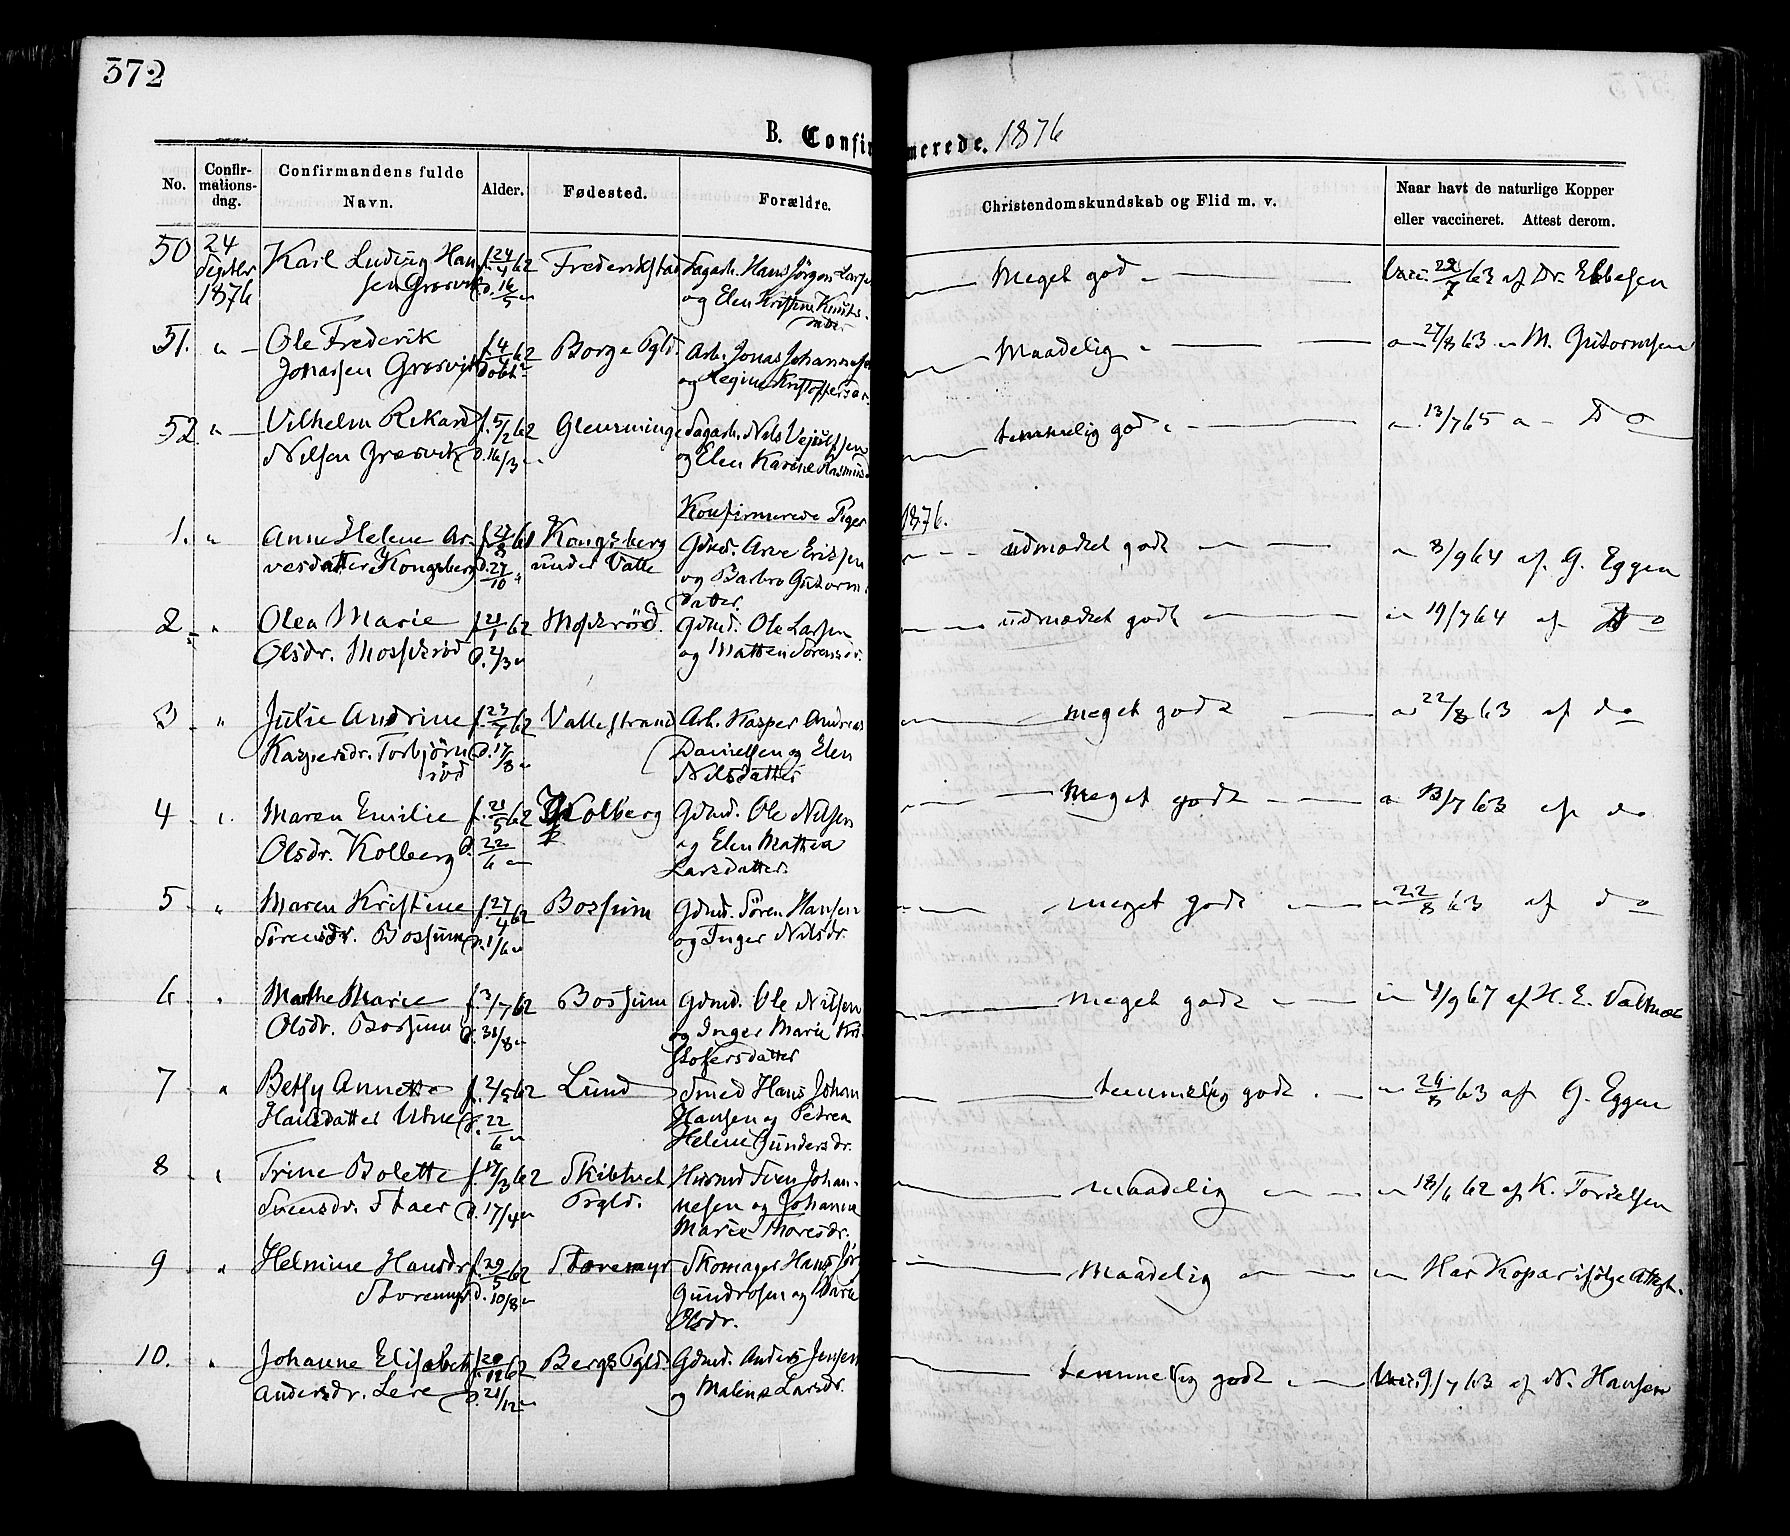 372
B. Confirmerede. 1876
No. Confirmationsdng. Confirmandens fulde Navn. Alder. Fødested. Forældre. Christendomskundskab og Flid m. v. Naar havt de naturlige Kopper eller vaccineret. Attest derom.
50 24 Karl Ludvig Han f. 24/4 62 Frederikstad Dagarb. Hans Jörgen Larsen Meget god Vacc. 22/7 63 af Dr. Ebbesen
Septbr sen Græsvik d. 16/5 " og Elen Kristine Knuts-
1876 datter
51. " Ole Frederik f. 4/4 62 Borge Pgld. Arb. Jonas Johannesen Maadelig " 27/8 63 " M. Gutormsen
Jonassen Græsvik og Regine Kristoffersdr.
52 " Vilhelm Rikard f. 5/2 62 Glemminge Dagarb. Nils Vejulfsen temmelig god " 13/7 65 " Do
Nilsen Græsvik d. 16/3 " og Elen Karine Rasmusd
Konfirmerede Piger 1876.
1. " Anne Helene Ar- f. 27/8 61 Kongsberg Gdmd. Arve Erissen udmærket godt " 8/9 64 af G. Eggen
vesdatter Kongsberg d. 27/10 " under Valle og Barbro Gutorms
datter
2 " Olea Marie f. 21/1 62 Mosskröd. Gdmd. Ole Larsen udmærket godt " 19/7 64 af Do
Olsdr. Mosskröd d. 2/3 " og Matten Sörensdr.
3 " Julie Andrine f. 23/7 62 Vallestrand Arb. Kasper Andreas meget godt " 22/8 63 af do
Kaspersdr. Torbjörn d. 17/8 " Danielsen og Elen
röd Nilsdatter
4 " Maren Emilie f. 21/5 62 Kolberg Gdmd. Ole Nilsen Meget godt " 13/7 63 af do
Olsdr. Kolberg d. 22/6 " og Elen Mathea
Larsdatter
5 " Maren Kristine f. 27/4 62 Bossum Gdmd. Sören Hansen meget godt " 22/8 63 af do
Sörensdr. Bossum d. 1/6 " og Inger Nilsdr.
6 " Mathe Marie f. 3/7 62 Bossum Gdmd. Ole Nilsen meget godt " 4/9 67 af H. E.
Olsdr. Bossum d. 31/8 " og Inger Marie Kri-
stofersdatter
7 " Betsy Annette f. 2/5 62 Lund Smed Hans Johan temmelig godt. " 24/8 63 af G. Eggen
Hansdatter Utne d. 22/6 " Hansen og Petrea
Helene Gundersdr.
8 " Trine Bolette f. 17/3 62 Skibtvet Husmd Sven Johan- maadelig " 18/6 62 af K. Torkelsen
Svensdr. Staer d. 17/4 " Pgld. nesen og Johanne
Marie Thoresdr.
9 " Helmine Hansdr f. 29/5 62 Storemyr Skomager Hans Jör Maadelig " Har Kopar ifölge Attest.
Storemyr d. 10/8 " gundrosen og Marie
Olsdr.
10. " Johanne Elisabeth f. 20/12 62 Bergs Pgld Gdmd. Anders Jensen temmelig godt Vacc. 9/7 63 af N. Hansen
Andersdr. Lere d. 21/12 " og Maline Larsdr.